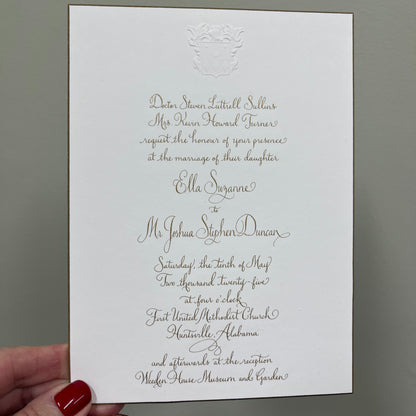 Doctor Steven Luttrell Sullins
Mrs. Keirn Howard Turner
request the honour of your presence
at the marriage of their daughter
Ella Suzanne
to
Mr. Joshua Stephen Duncan
Saturday, the tenth of May
Two thousand twenty-five
at four o'clock
First United Methodist Church
Huntsville, Alabama
and afterwards at the reception
Weeden House Museum and Garden